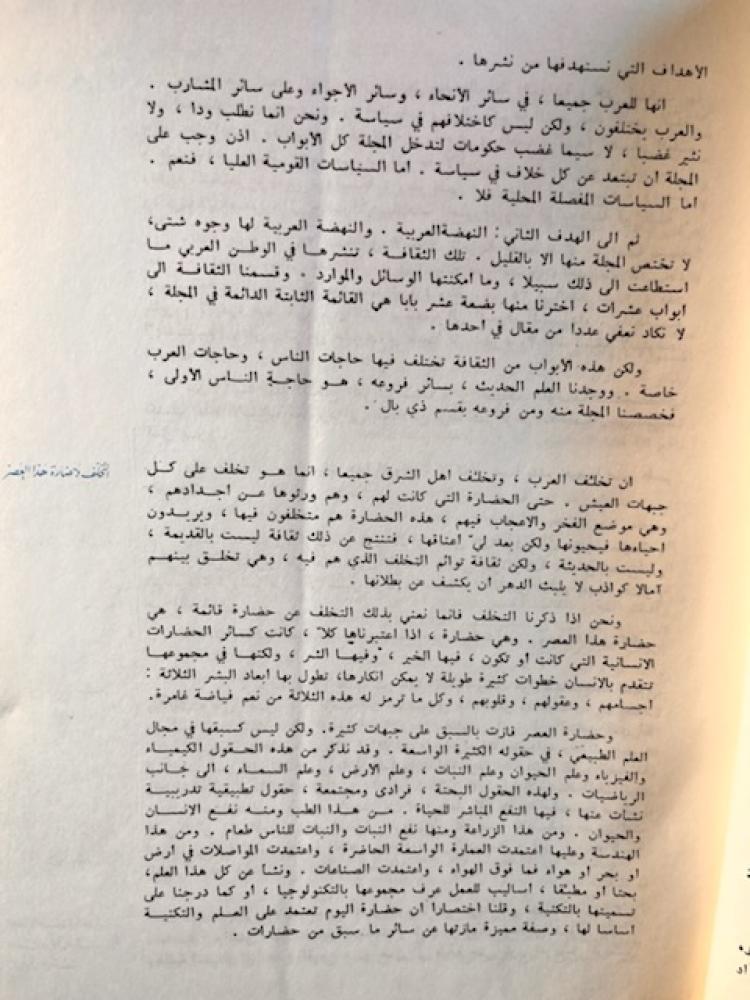 الاهداف التي نستهدفها من نشرها .
انها للعرب جميعا ، في سائر الأنحاء ، وسائر الأجواء وعلى سائر المشارب .
والعرب يختلفون ، ولكن ليس كاختلافهم في سياسة . ونحن انما نطلب ودا ، ولا
نثير غضبا ، لا سيما غضب حكومات لتدخل المجلة كل الأبواب . اذن وجب على
المجلة أن تبتعد عن كل خلاف في سياسة . أما السياسات القومية العليا ، فنعم .
أما السياسات المفصلة المحلية فلا .
ثم الى الهدف الثاني : النهضة العربية . والنهضة العربية لها وجوه شتى،
لا تختص المجلة منها الا بالقليل . تلك الثقافة ، تنشرها في الوطن العربي ما
استطاعت الى ذلك سبيلا ، وما أمكنتها الوسائل والموارد . وقسمنا الثقافة الى
أبواب عشرات ، اخترنا منها بضعة عشر بابا هي القائمة الثابتة الدائمة في المجلة ،
لا نكاد نعفي عددا من مقال في أحدها .
ولكن هذه الأبواب من الثقافة تختلف فيها حاجات الناس ، وحاجات العرب
خاصة . ووجدنا العلم الحديث ، بسائر فروعه ، هو حاجة الناس الأولى ،
فخصصنا المجلة منه ومن فروعه بقسم ذي بال .
ان تخلف العرب ، وتخلف اهل الشرق جميعا ، انما هو تخلف على كل
التخلف لحضارة هذا العصر
جبهات العيش . حتى الحضارة التي كانت لهم ، وهم ورثوها عن أجدادهم ،
وهي موضع الفخر والاعجاب فيهم ، هذه الحضارة هم متخلفون فيها ، ويريدون
احياءها فيحيونها ولكن بعد ليّ أعناقها ، فتنتج عن ذلك ثقافة ليست بالقديمة ،
وليست بالحديثة ، ولكن ثقافة توائم التخلف الذي هم فيه ، وهي تخلق بينهم
آمالا كواذب لا يلبث الدهر أن يكشف عن بطلانها .
ونحن اذا ذكرنا التخلف فانما نعني بذلك التخلف عن حضارة قائمة ، هي
حضارة هذا العصر . وهي حضارة ، اذا اعتبرناها كلا ، كانت كسائر الحضارات
الانسانية التي كانت أو تكون ، فيها الخير ، وفيها الشر ، ولكنها في مجموعها
تتقدم بالانسان خطوات كثيرة طويلة لا يمكن انكارها، تطول بها أبعاد البشر الثلاثة :
أجسامهم ، وعقولهم ، وقلوبهم ، وكل ما ترمز له هذه الثلاثة من نعم فياضة غامرة.
وحضارة العصر فازت بالسبق على جبهات كثيرة. ولكن ليس كسبقها في مجال
العلم الطبيعي ، في حقوله الكثيرة الواسعة . وقد نذكر من هذه الحقول الكيمياء
والفيزياء وعلم الحيوان وعلم النبات ، وعلم الأرض ، وعلم السماء ، الى جانب
الرياضيات . ولهذه الحقول البحتة ، فرادى ومجتمعة ، حقول تطبيقية تدريبية
نشأت عنها ، فيها النفع المباشر للحياة . من هذا الطب ومنه نفع الانسان
والحيوان . ومن هذا الزراعة ومنها نفع النبات والنبات للناس طعام . ومن هذا
الهندسة وعليها اعتمدت العمارة الواسعة الحاضرة ، واعتمدت المواصلات في أرض
أو بحر أو هواء فما فوق الهواء ، واعتمدت الصناعات . ونشأ عن كل هذا العلم،
بحتا أو مطبقا ، أساليب للعمل عرف مجموعها بالتكنولوجيا ، أو كما درجنا على
تسميتها بالتكنية ، وقلنا اختصارا ان حضارة اليوم تعتمد على العلم والتكنية
أساسا لها ، وصفة مميزة مازتها عن سائر ما سبق من حضارات .